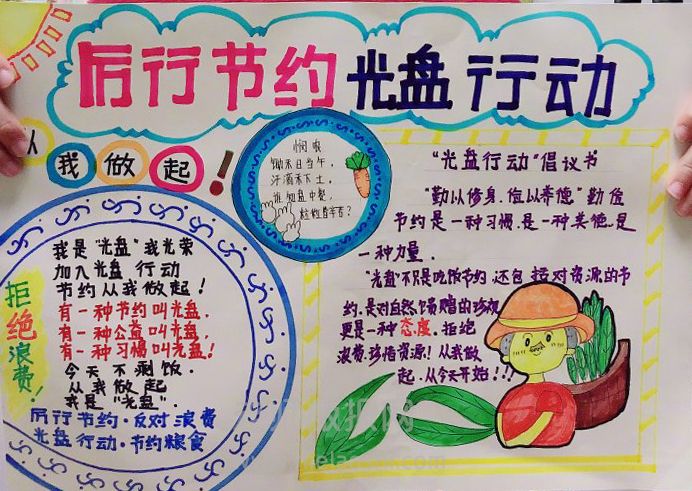 厉行节约光盘行动
从我做起!
悯农
锄禾日当午,
汗滴禾下土,
谁知盘中餐,
粒粒皆辛苦?
拒绝浪费!
我是"光盘"我光荣
加入光盘行动
节约从我做起!
有一种节约叫光盘,
有一种公益叫光盘,
有一种习惯叫光盘!
今天不剩饭.
从我做起
我是"光盘".
厉行节约·反对浪费
光盘行动·节约粮食
"光盘行动"倡议书
"勤以修身,俭以养德"勤俭
节约是一种习惯,是一种美德,是
一种力量.
"光盘"不只是吃饭节约 还包括对资源的节
约.是对自然馈赠的珍视
更是一种态度.拒绝
浪费,珍惜资源!从我做
起.从今天开始!!!